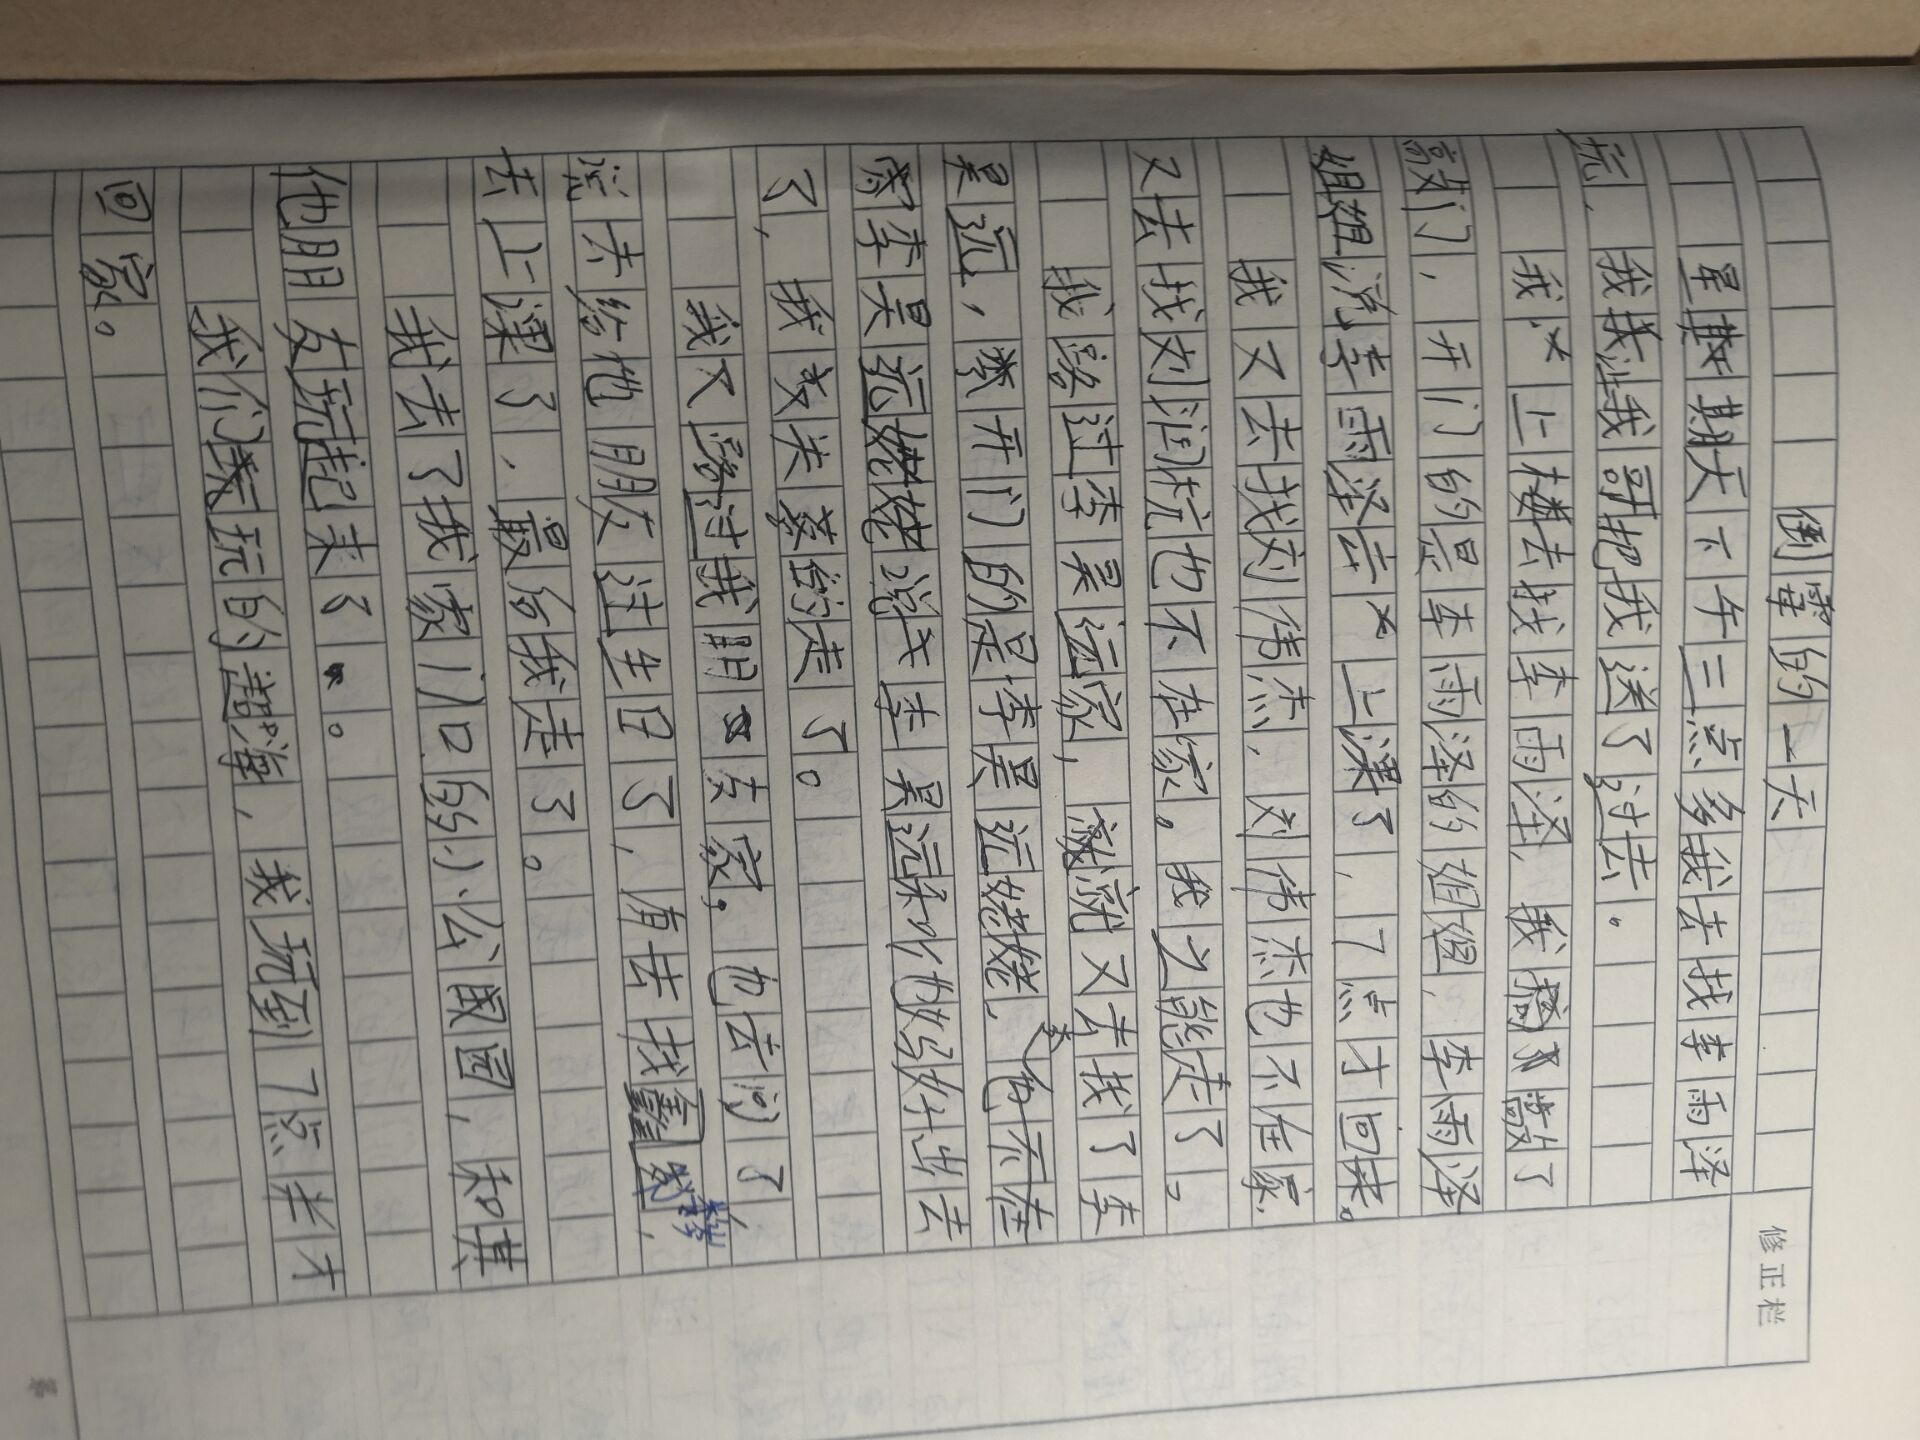 倒霉的一天
星期天下午三点多我去找李雨泽
玩，我让我哥把我送了过去。
我上楼去找李雨泽，我敲了
敲门，开门的是李雨泽的姐姐，李雨泽
姐姐说李雨泽去上课了，7点才回来。
我又去找刘伟杰，刘伟杰也不在家，
又去找刘润杭也不在家。我只能走了。
我路过李昊远家，就又去找了李
昊远，开门的是李昊远姥姥，他不在
家李昊远姥姥说李昊远和他妈妈出去
了，我又失落的走了。
我又路过我朋友家。也去问了，
说去给他朋友过生日了，有去找
去上课了，最后我走了。
我去了我家门口的小公园，和其
他朋友玩起来了。
我们玩的
，我玩到7点半才
回家。
修正栏